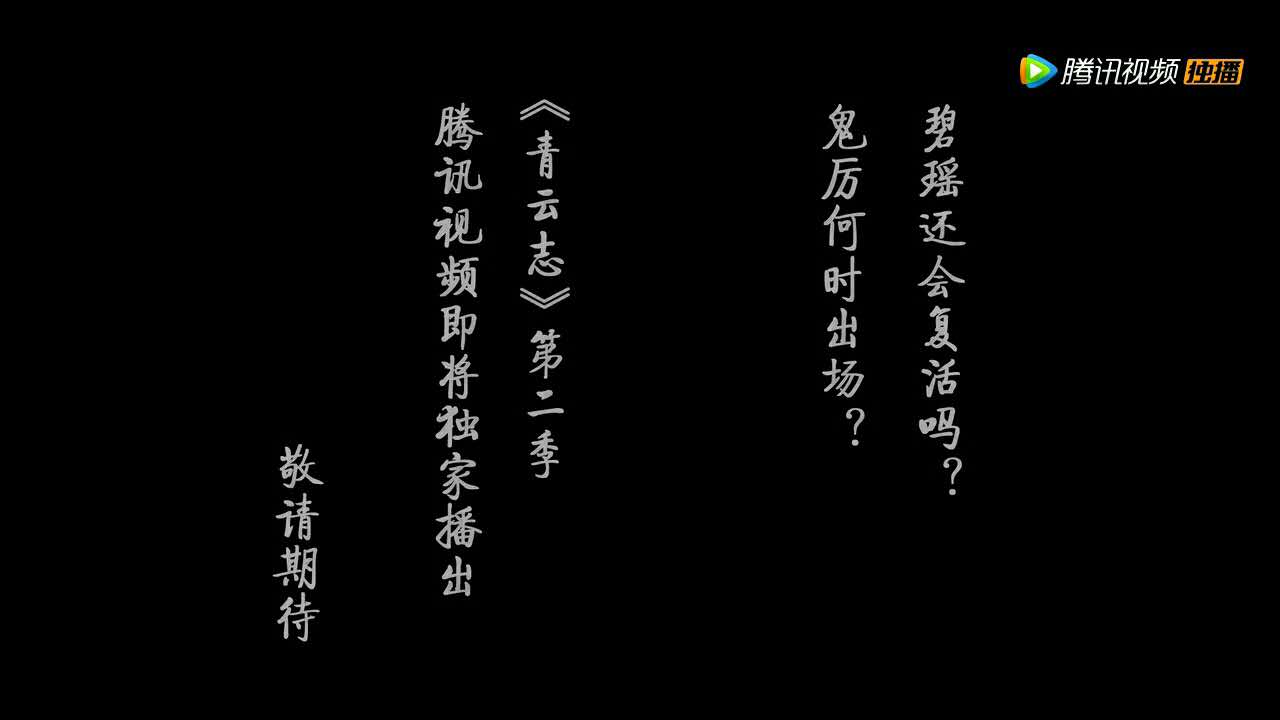 腾讯视频 独播
碧瑶还会复活吗？
鬼厉何时出场？
《青云志》第二季
腾讯视频即将独家播出
敬请期待